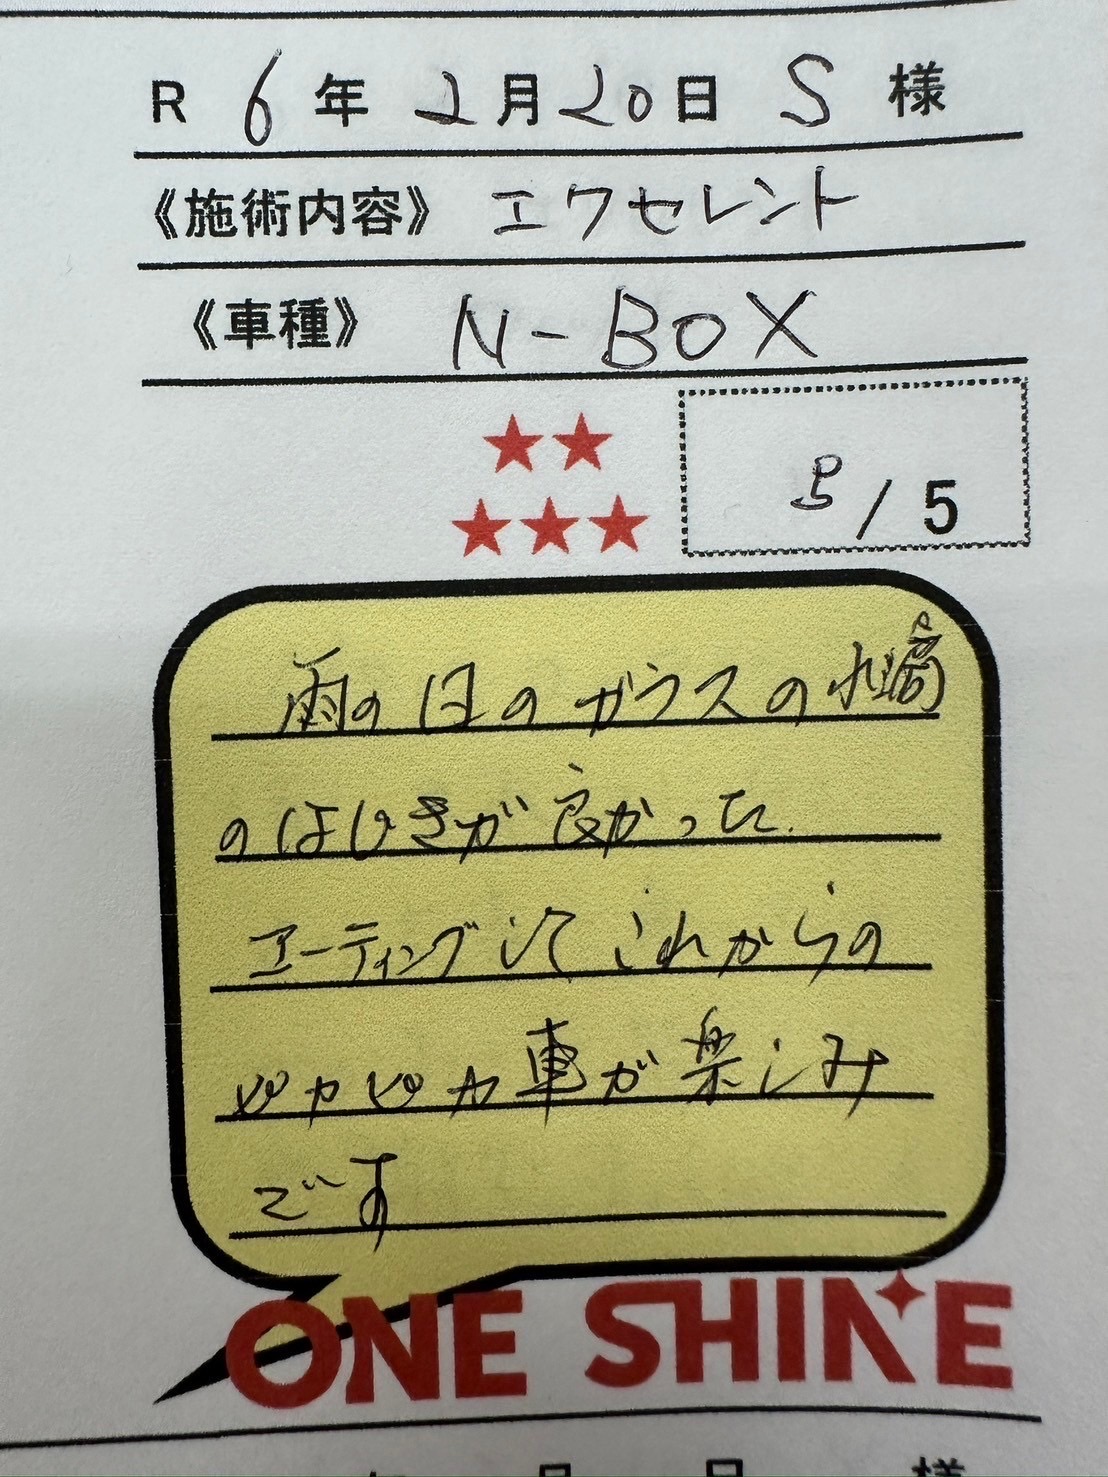 R 6 年 2 月 20 日 S 様
《施術内容》 エクセレント
《車種》 N-BOX
5 / 5
雨の日のガラスの水滴
のはじきが良かった.
コーティングしてこれからの
ピカピカ車が楽しみ
です
ONE SHINE